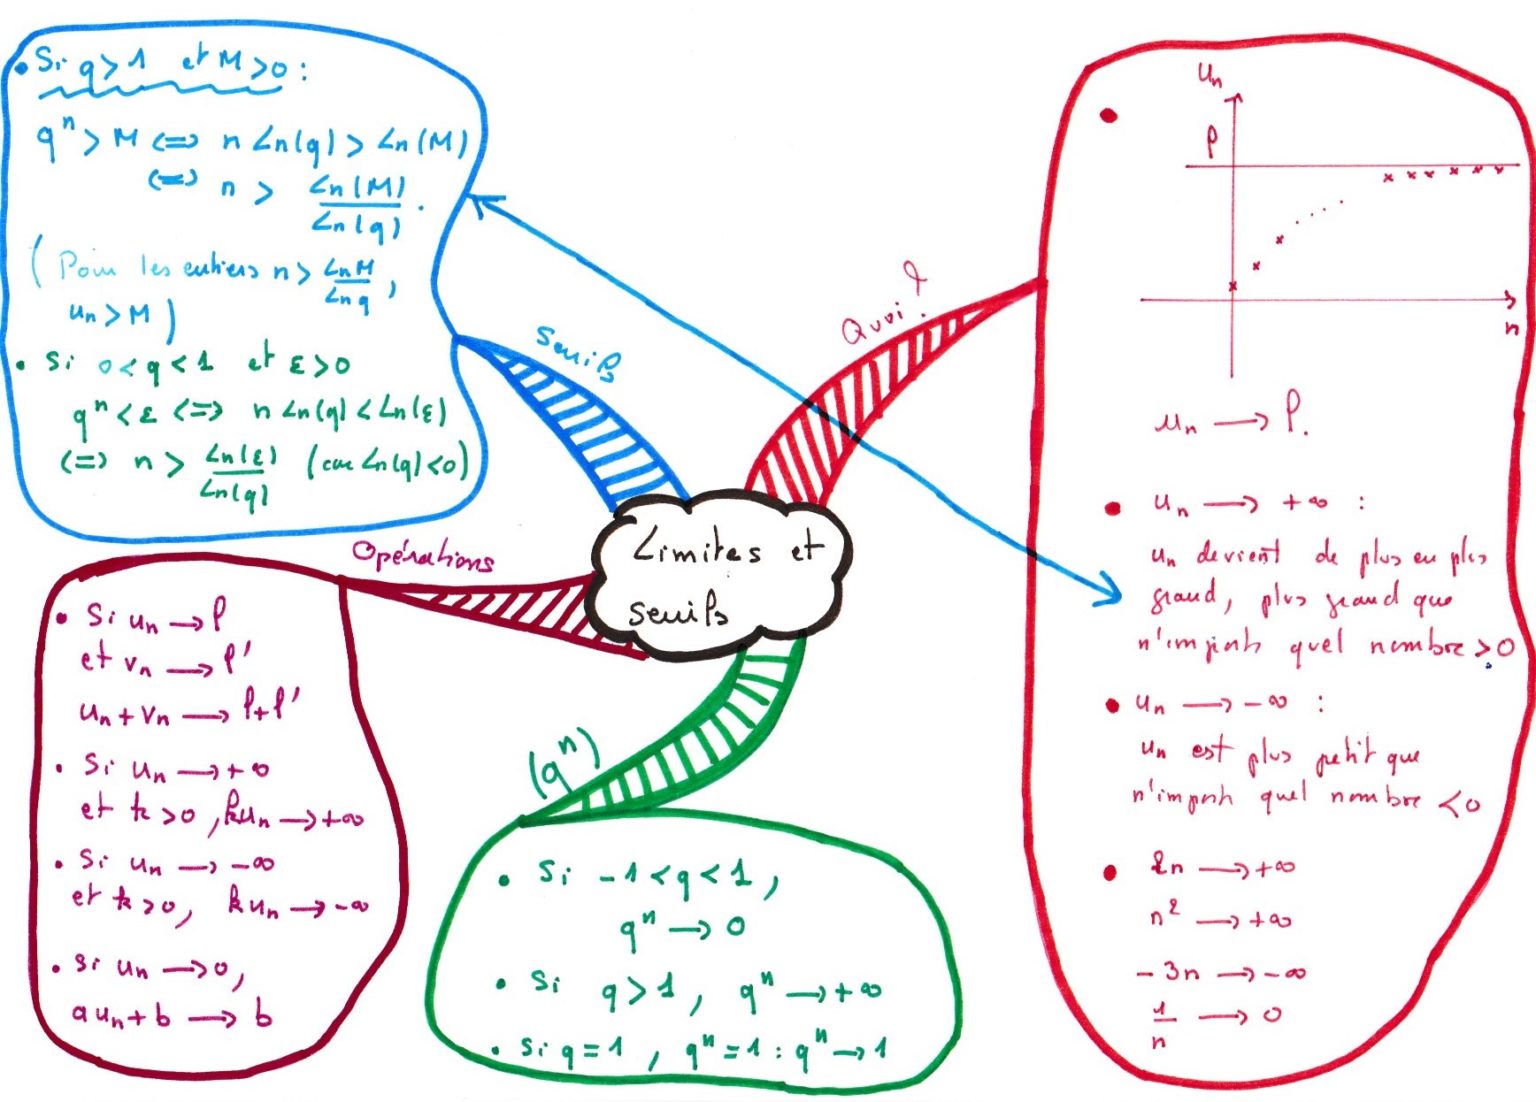 Limites et
seuils
Seuils
• Si q > 1 et M > 0 :
qⁿ > M <=> n Ln(q) > Ln(M)
<=> n > Ln(M)/Ln(q).
(Pour les entiers n > LnM/Lnq,
un > M)
• Si 0 < q < 1 et ε > 0
qⁿ < ε <=> n Ln(q) < Ln(ε)
<=> n > Ln(ε)/Ln(q) (car Ln(q) < 0)
Quoi ?
un
l
n
un → l.
• un → +∞ :
un devient de plus en plus
grand, plus grand que
n'importe quel nombre > 0
• un → -∞ :
un est plus petit que
n'importe quel nombre < 0
• 2n → +∞
n² → +∞
- 3n → -∞
1/n → 0
Opérations
• Si un → l
et vn → l'
un + vn → l + l'
• Si un → +∞
et k > 0, kun → +∞
• Si un → -∞
et k > 0, kun → -∞
• si un → 0,
aun + b → b
(qⁿ)
• Si -1 < q < 1,
qⁿ → 0
• Si q > 1, qⁿ → +∞
• Si q = 1, qⁿ = 1 : qⁿ → 1